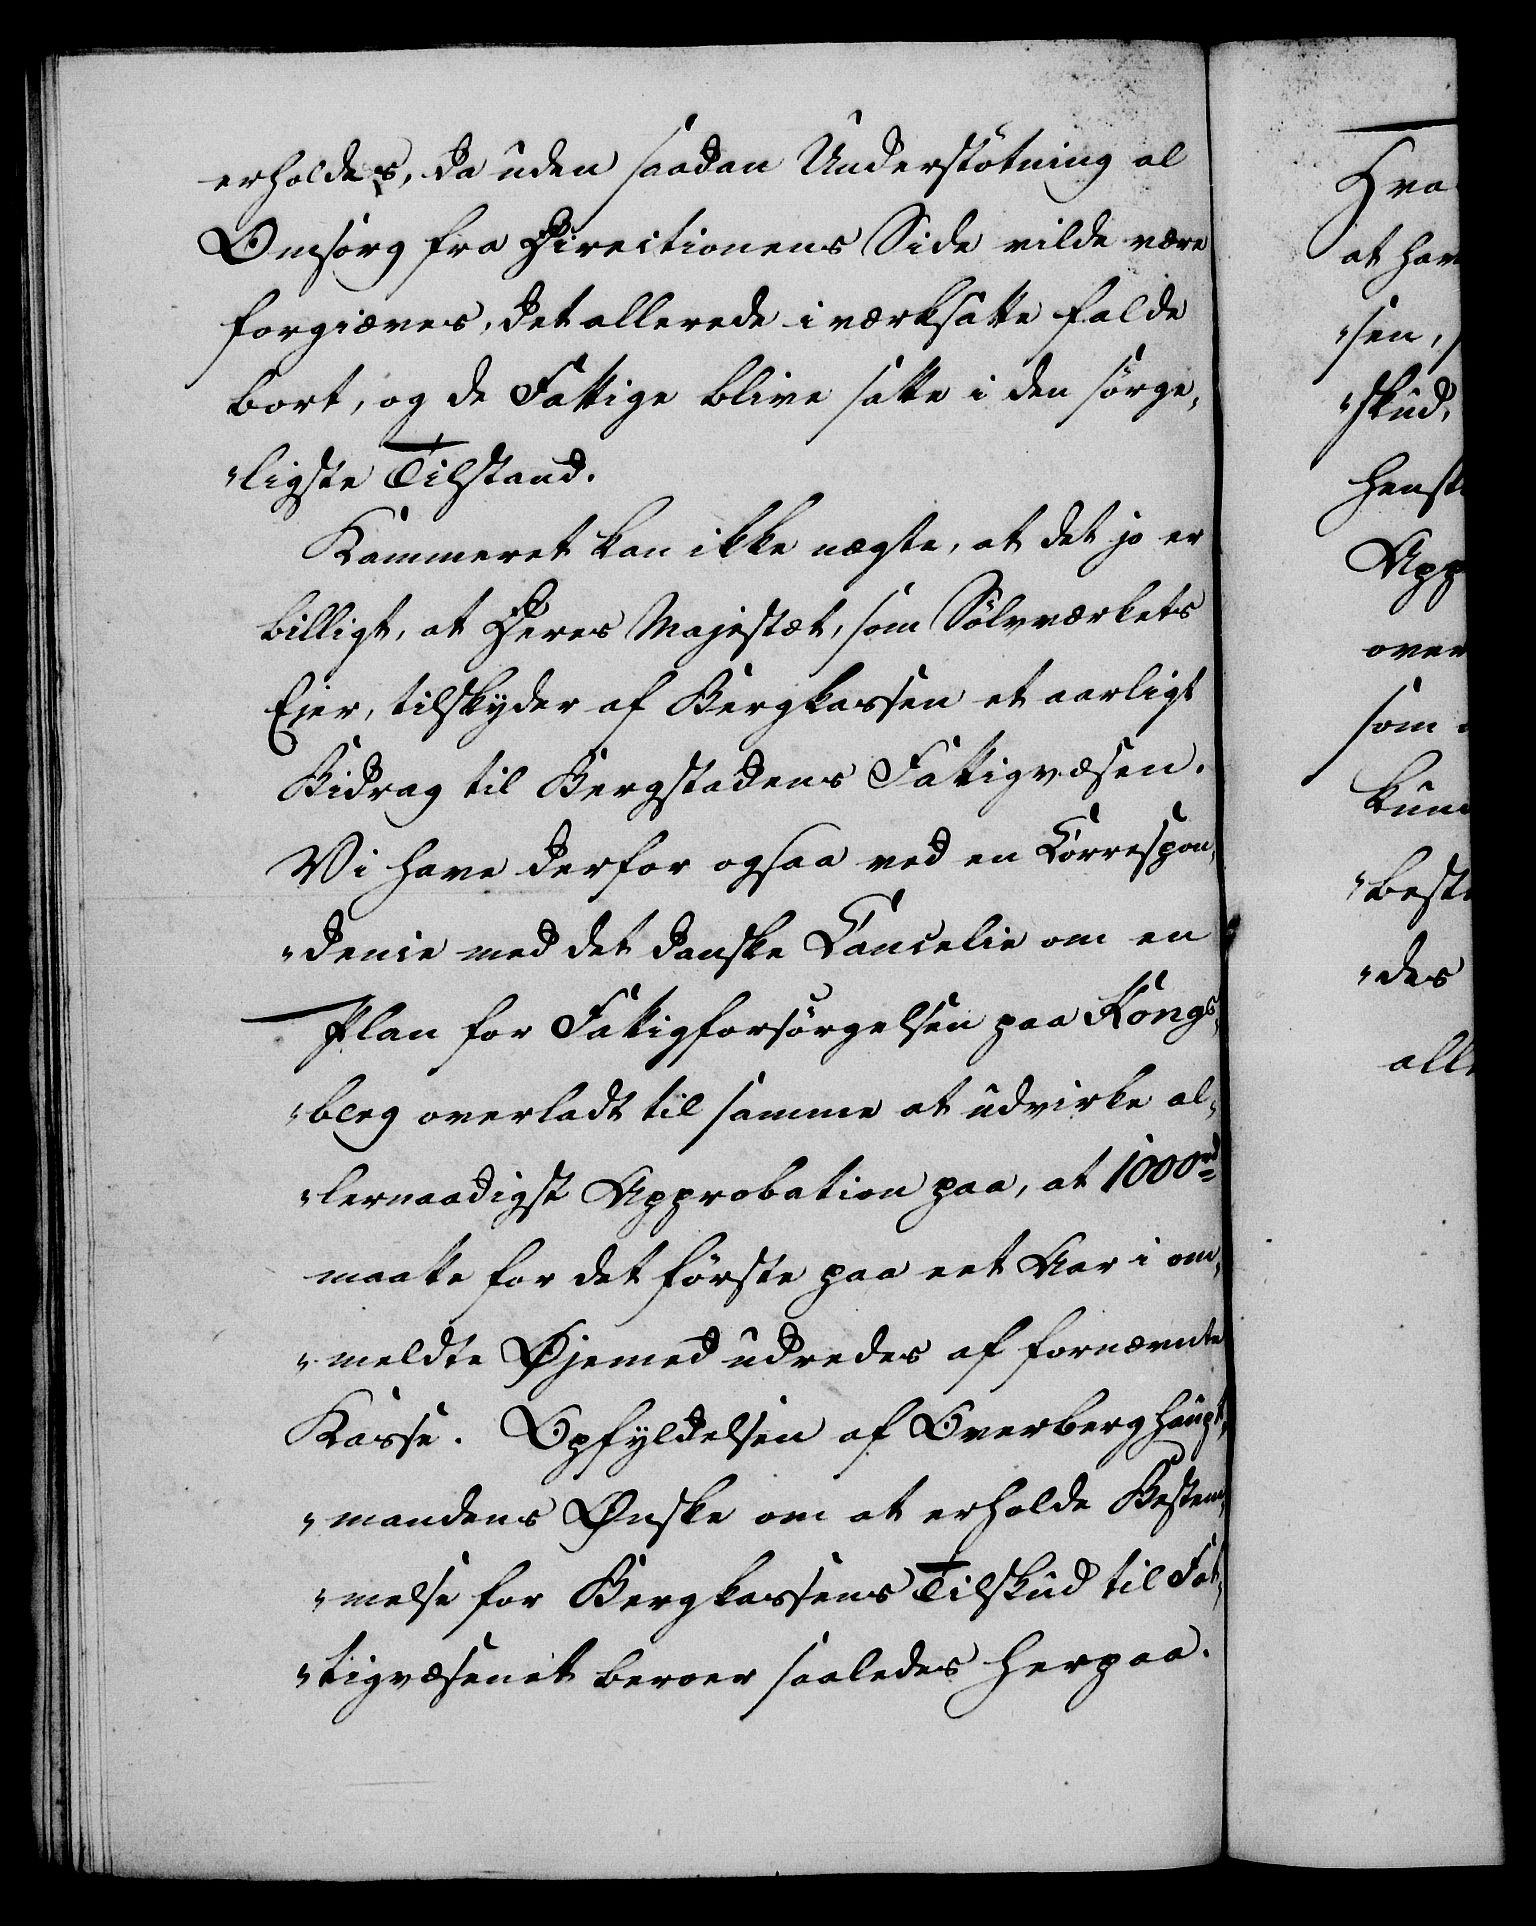 erholdes, da uden saadan Understøtning al
Omsorg fra Directionens Side vilde være
forgiæves, det allerede iværksatte falde
bort, og de Fattige blive satte i den sørge,
"ligste Tilstand.
Kammeret kan ikke nægte, at det jo er
billigt, at Deres Majestæt, som Sølvværkets
Ejer, tilskyder af Bergkassen et aarligt
Bidrag til Bergstadens Fattigvæsen.
Vi have derfor ogsaa ved en Correspon,
"dence med det danske Cancelie om en
Plan for Fattigforsørgelsen paa Kongs,
"berg overladt til samme at udvirke al,
"lernaadigst Approbation paa, at 1000rd
maatte for det første paa eet Aar i om,
"meldte Øjemed udredes af fornævnte
Kasse. Opfyldelsen af Overberghaupt,
"mandens Ønske om at erholde Bestem,
"melse for Bergkassens Tilskud til Fat,
"tigvæsenet beroer saaledes herpaa.
Hva
at hav
"sen,
"skud,
henst
App
over
som
kun
"best
"des
all